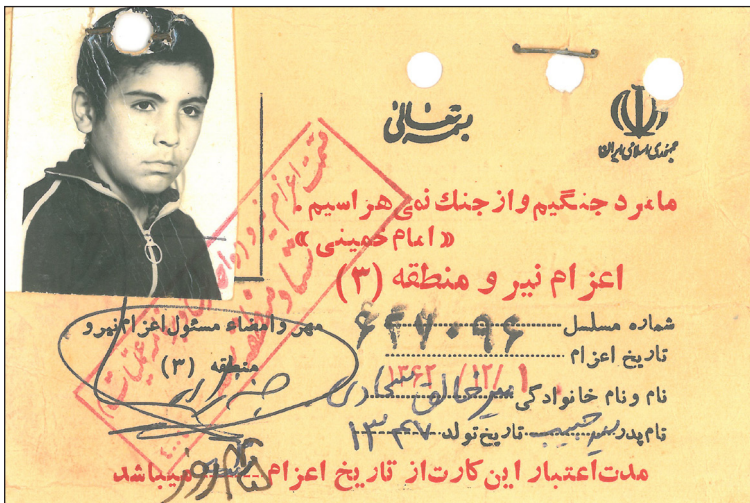 بسمه تعالی
جمهوری اسلامی ایران
ما مرد جنگیم و از جنگ نمی هراسیم .
«امام خمینی»
اعزام نیرو منطقه (۳)
شماره مسلسل ۶۴۷۰۹۶
تاریخ اعزام ۱۳۶۲/۱۲/۱
نام و نام خانوادگی
نام پدر تاریخ تولد ۱۳۴۷
مدت اعتبار این کارت از تاریخ اعزام ۴۵ روز میباشد
مهر و امضاء مسئول اعزام نیرو
منطقه (۳)